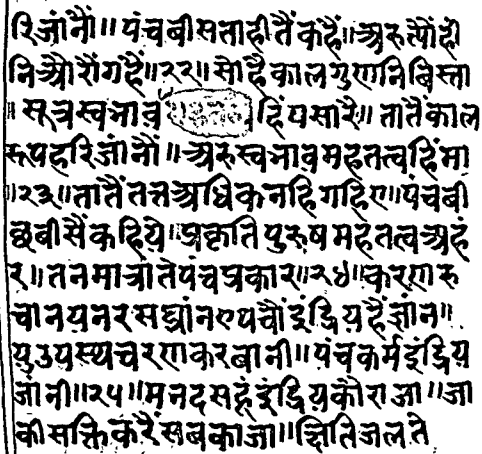 रिजांनौं॥पंचबीसत्ताहीतैंकहैं॥अरुत्यौंही
निऔरौंगहैं॥२२॥सोहैकालगुणनिबिस्ता
॥सूत्रस्वभाव हिंपसारै॥तातैंकाल
रूपहरिजांनौं॥अरुस्वभावमहतत्वहिंमा
॥२३॥तातैंतत्तअधिकनहिगहिए॥पंचबी
छबीसैंकहिये॥प्रकृतिपुरुषमहतत्वअहं
र॥तनमात्रातेपंचप्रकार॥२४॥करणरु
चानयनरसघ्रांनएपचौंइंद्रियहैंज्ञांन॥
युउपस्थचरणकरबानी॥पंचकर्मइंद्रिय
जांनी॥२५॥मनदसहूंइंद्रियकौराजा॥जा
कीसक्तिकरैंसबकाजा॥क्षितिजलते